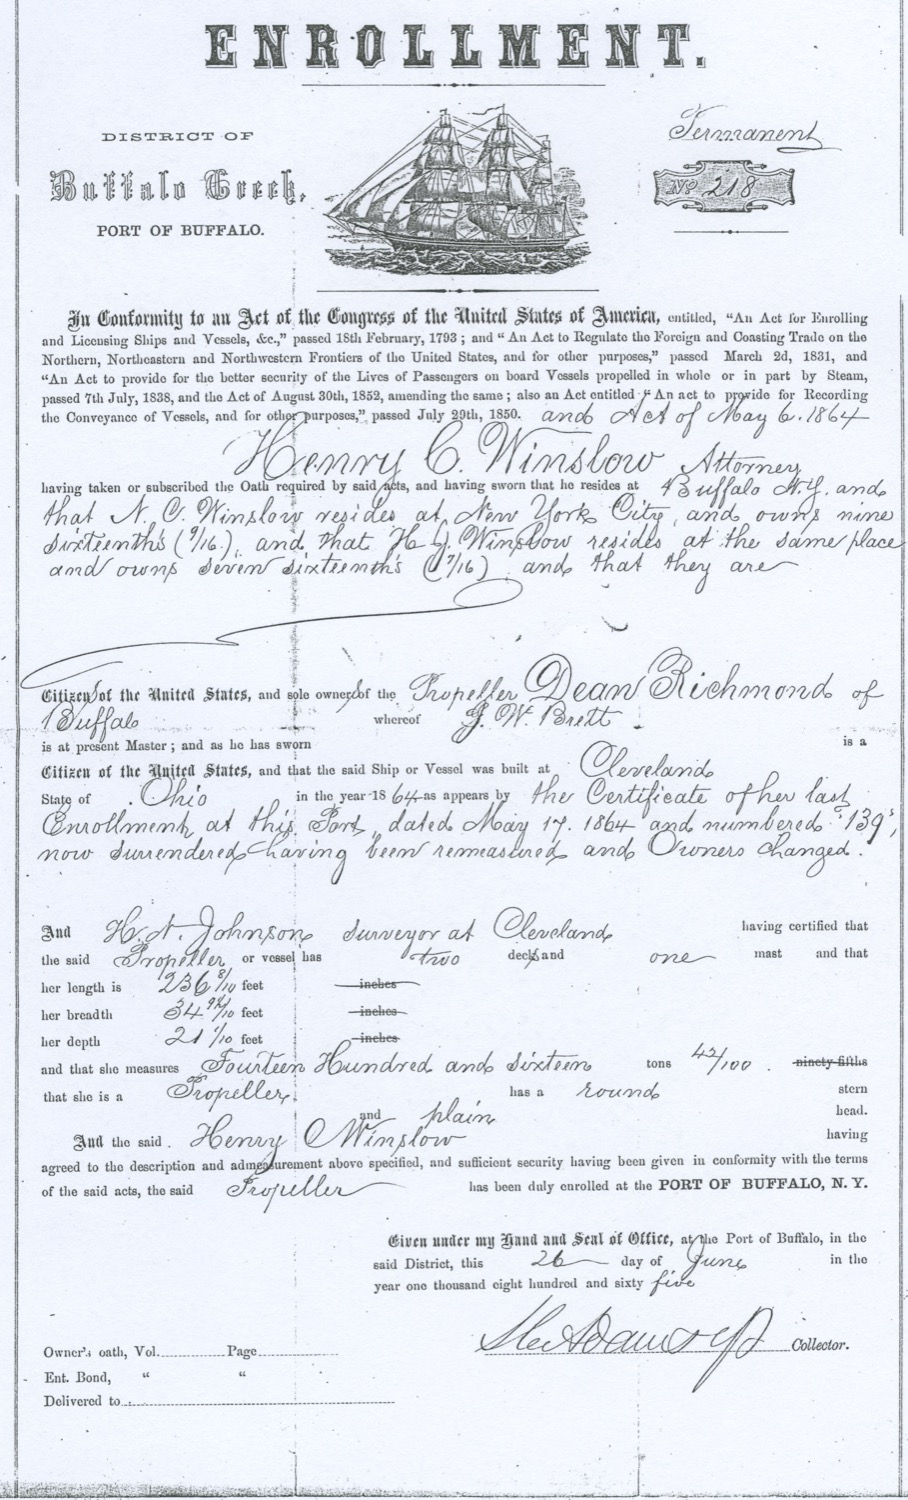 ENROLLMENT.
DISTRICT OF
Buffalo Creek,
PORT OF BUFFALO.
Permanent
No 218
In Conformity to an Act of the Congress of the United States of America, entitled, "An Act for Enrolling
and Licensing Ships and Vessels, &c.," passed 18th February, 1793; and "An Act to Regulate the Foreign and Coasting Trade on the
Northern, Northeastern and Northwestern Frontiers of the United States, and for other purposes," passed March 2d, 1831, and
"An Act to provide for the better security of the Lives of Passengers on board Vessels propelled in whole or in part by Steam,
passed 7th July, 1838, and the Act of August 30th, 1852, amending the same; also an Act entitled "An act to provide for Recording
the Conveyance of Vessels, and for other purposes," passed July 29th, 1850. and Act of May 6. 1864
Henry C. Winslow Attorney
having taken or subscribed the Oath required by said acts, and having sworn that he resides at Buffalo N.Y. and
that N. C. Winslow resides at New York City, and owns nine
sixteenths (9/16), and that H J Winslow resides at the same place
and owns seven sixteenths (7/16) and that they are
Citizens of the United States, and sole owners of the Propeller Dean Richmond of
Buffalo whereof J. W. Brett
is at present Master; and as he has sworn is a
Citizen of the United States, and that the said Ship or Vessel was built at Cleveland
State of Ohio in the year 1864 as appears by the Certificate of her last
Enrollment at this Port, dated May 17. 1864 and numbered "139",
now surrendered having been remeasured and Owners changed.
And H. N. Johnson surveyor at Cleveland having certified that
the said Propeller or vessel has two decks and one mast and that
her length is 236 8/10 feet inches
her breadth 34 92/10 feet inches
her depth 21 1/10 feet inches
and that she measures Fourteen Hundred and sixteen tons 42/100. ninety-fifths
that she is a Propeller has a round stern
and plain head.
And the said Henry C Winslow having
agreed to the description and admeasurement above specified, and sufficient security having been given in conformity with the terms
of the said acts, the said Propeller has been duly enrolled at the PORT OF BUFFALO, N. Y.
Given under my Hand and Seal of Office, at the Port of Buffalo, in the
said District, this 26 day of June in the
year one thousand eight hundred and sixty five
Collector.
Owner's oath, Vol. Page
Ent. Bond, " "
Delivered to